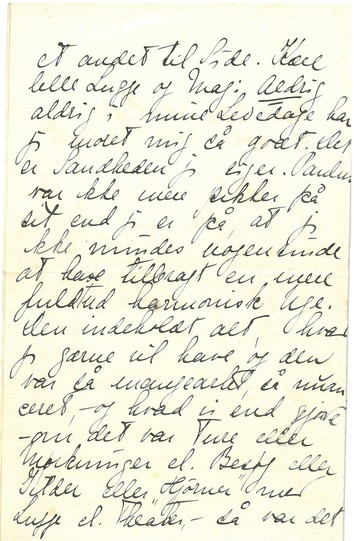 et andet til Side. Kære
lille Lugge og Magi. Aldrig
aldrig i mine Levedage har
jeg moret mig så godt. Det
er Sandheden jeg siger. Paulus
var ikke mere sikker på
sit end jeg er på, at jeg
ikke mindes nogensinde
at have tilbragt en mere
fuldtud harmonisk Uge.
Den indeholdt alt, hvad
jeg gærne vil have, og den
var så mangeartet, så nuan
ceret, - og hvad vi end gjorde
- om det var Ture eller
el. Besøg eller
Gilder eller "Hjørner" med
Lugge el. Theater, - så var det